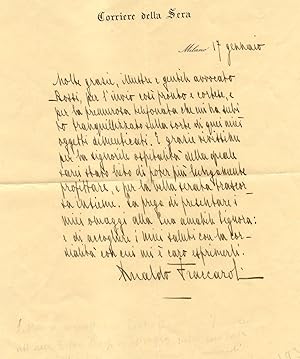 Corriere della Sera
Milano 17 gennaio
Molte grazie, illustre e gentile avvocato
Rossi, per l'invio così pronto e cortese, e
per la premurosa telefonata che mi ha subi
to tranquillizzato sulla sorte di quei miei
oggetti dimenticati. E grazie vivissime
per la signorile ospitalità della quale
sarei stato lieto di poter più lungamente
profittare, e per la bella serata trascor
sa insieme. La prego di presentare i
miei omaggi alla Sua amabile Signora:
e di accogliere i miei saluti con la cor
dialità con cui mi è caro esprimerli.
Arnaldo Fraccaroli